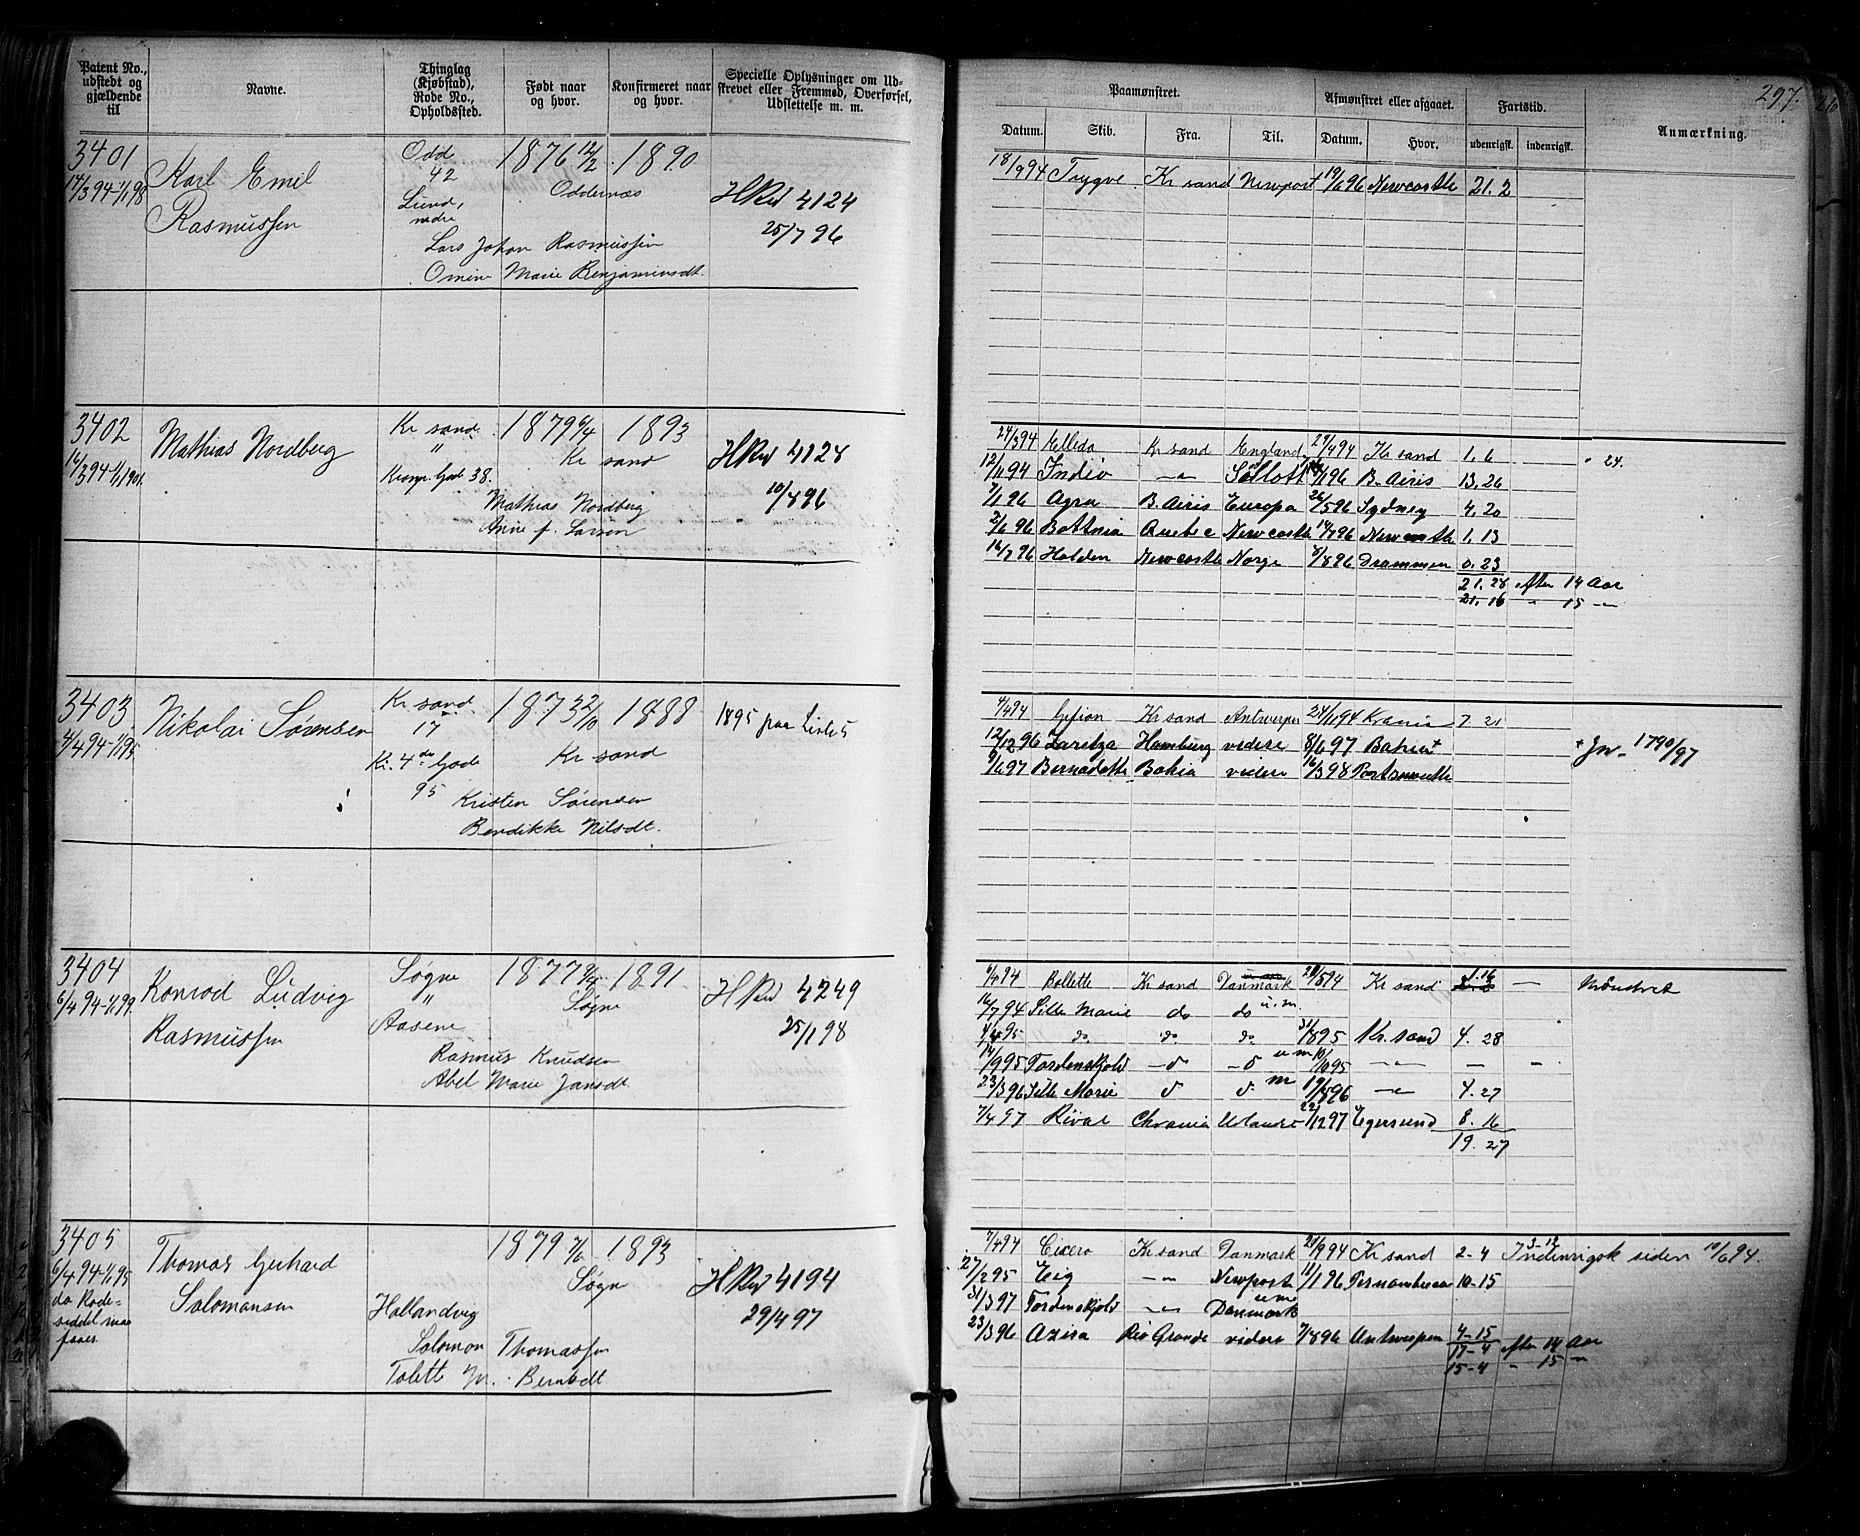 297.
Patent No., udstedt og gjældende til
Navne.
Thinglag (Kjøbstad), Rode No., Opholdssted.
Født naar og hvor.
Konfirmeret naar og hvor.
Specielle Oplysninger om Udskrevet eller Fremmed, Overførsel, Udslettelse m. m.
Paamønstret.
Afmønstret eller afgaaet.
Fartstid.
Anmærkning.
Datum.
Skib.
Fra.
Til.
Datum.
Hvor.
udenrigsk.
indenrigsk.
3401
17/3 94-1/1 98
Karl Emil
Rasmussen
Odd
42
Lund,
nedre
1876 12/2
1890
Oddernæs
HRul 4124
25/7 96
Lars Johan Rasmussen
Omine Marie Benjaminsdt.
18/3 94 Trygve Kr sand Newport 19/6 96 Newcastle 21. 2
3402
16/3 94-1/1 1901
Mathias Nordberg
Kr sand
"
38.
1879 6/4
1893
Kr sand
HRul 4128
10/4 96
Mathias Nordberg
Anne f. Larsen
24/3 94 Ellida Kr sand England 29/4 94 Kr sand 1. 6 24.
12/11 94 India -"- 96 B. Airis 13. 26
7/1 96 Agra B. Airis Europa 26/5 96 Sydney 4. 20
2/6 96 Bottnia Quebec Newcastle 14/7 96 Newcastle 1. 13
16/7 96 Halden Newcastle Norge 8/8 96 Drammen 0. 23
21. 28 efter 14 Aar
21. 16 " 15 -"-
3403
4/4 94-1/1 95
Nikolai Sørensen
Kr sand
17
Kr. 4de Gade
95
1873 22/10
1888
Kr sand
1895 paa Liste 5
Kristen Sørensen
Bendikke Nilsdt.
4/4 94 Gefion Kr sand Antwerpen 24/11 94 Krania 7. 21
12/12 96 Zaritza Hamburg videre 8/6 97 Bahia + + Jn. 1790/97
9/6 97 Bernadotte Bahia videre 16/3 98 Portsmouth
3404
6/4 94-1/1 99
Konrad Ludvig
Rasmussen
Søgne
"
Aasene
1877 9/4
1891
Søgne
HRul 4249
25/1 98
Rasmus Knudsen
Abel Marie Jansdt
6/4 94 Bollette Kr sand Danmark 28/5 94 Kr sand 1. 16 — Mønstret
16/7 94 Sille Marie do do u. m.
95 do do do 31/8 95 Kr. sand 4. 28
14/9 95 Tordenskjold -d -d u m 95 -"- - -
23/3 96 Sille Marie d d m 19/8 96 -"- 4. 27
7/4 97 Rival Chrania Udlandet 22/12 97 Egersund 8. 16
19. 27
3405
6/4 94-1/1 95
da Rode-
siddel maa
faaes
Thomas Gerhard
Salomonsen
Hollandvig
1879 7/6
1893
Søgne
HRul 4194
29/4 97
Salomon Thomassen
Tolette M. Berntsdt
7/4 94 Cicero Kr sand Danmark 28/9 94 Kr sand 2-4 3-12
Indenrigsk siden 10/6 94.
27/2 95 Eig -"- Newport 11/1 96 Pernambuco 10-15
31/3 97 Tordenskjold -"- Danmark u m
23/3 96 Azira Rio Grande videre 7/8 96 Antwerpen 4-15
17-4 efter 14 Aar
15-4 " 15 "